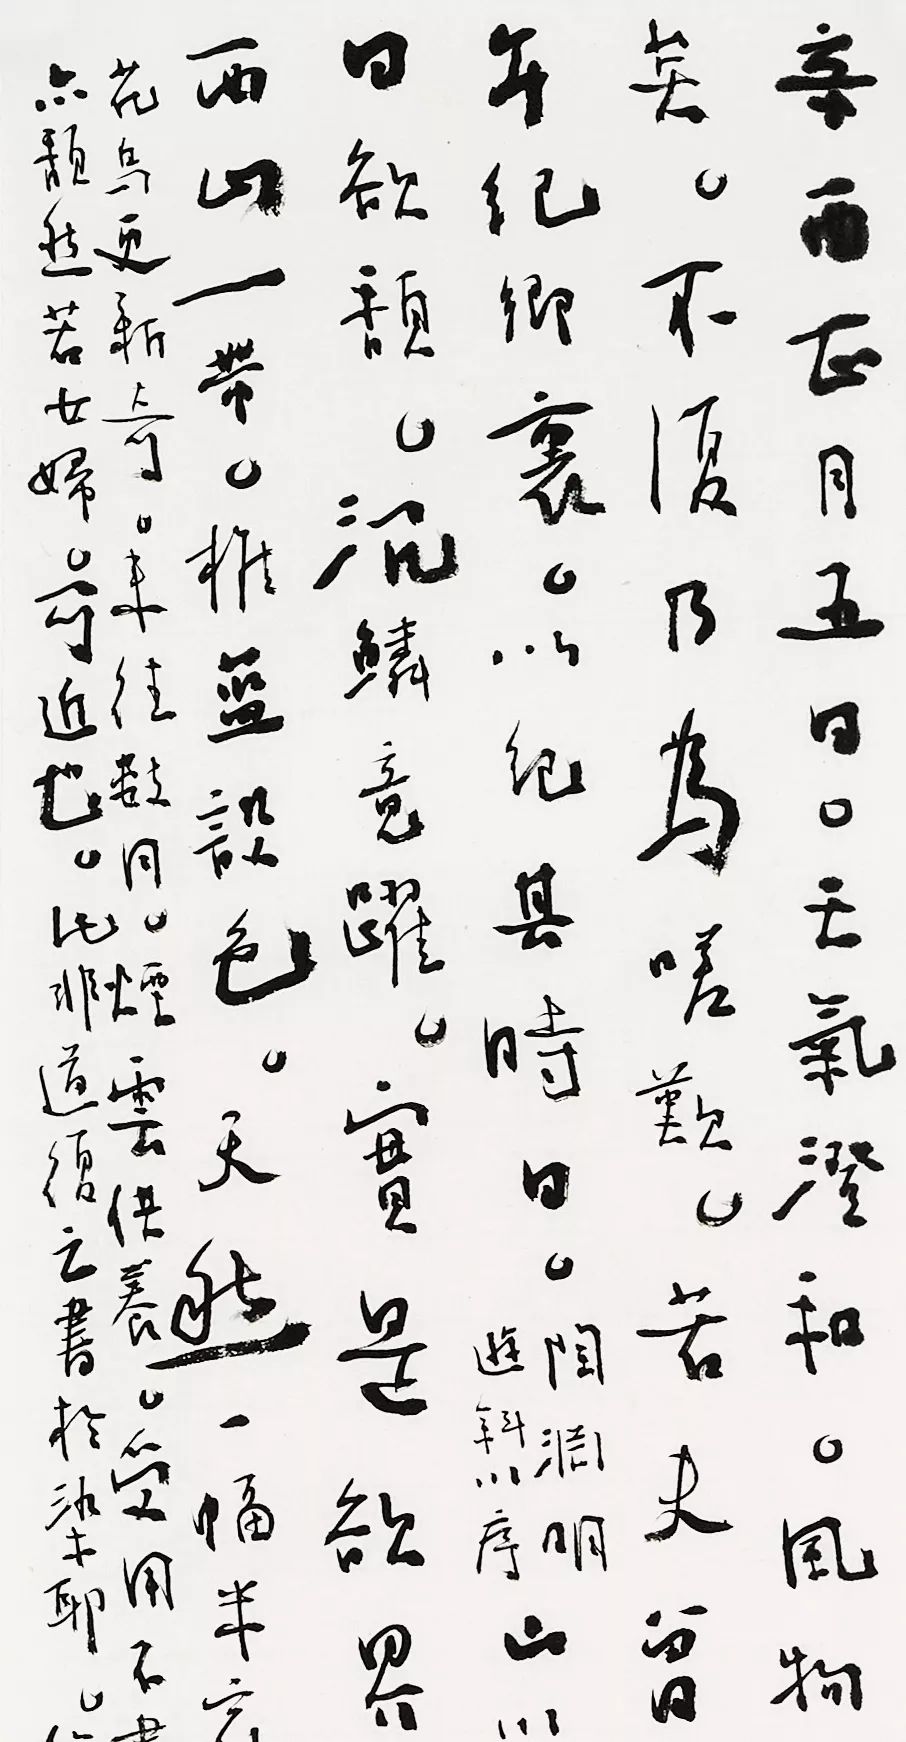 辛酉正月五日。天氣澄和。風物
美。不復乃為嗟歎。若夫曾
年紀鄉裏。以紀其時日。陶淵明遊斜川序 山川
日欲頹。沉鱗竟躍。實是欲界
西山一帶。堆藍設色。天然一幅米家
花鳥更新奇。來往數月。煙雲供養。受用不盡
亦頹然若女婦。可近也。此非道復之書於染耶。